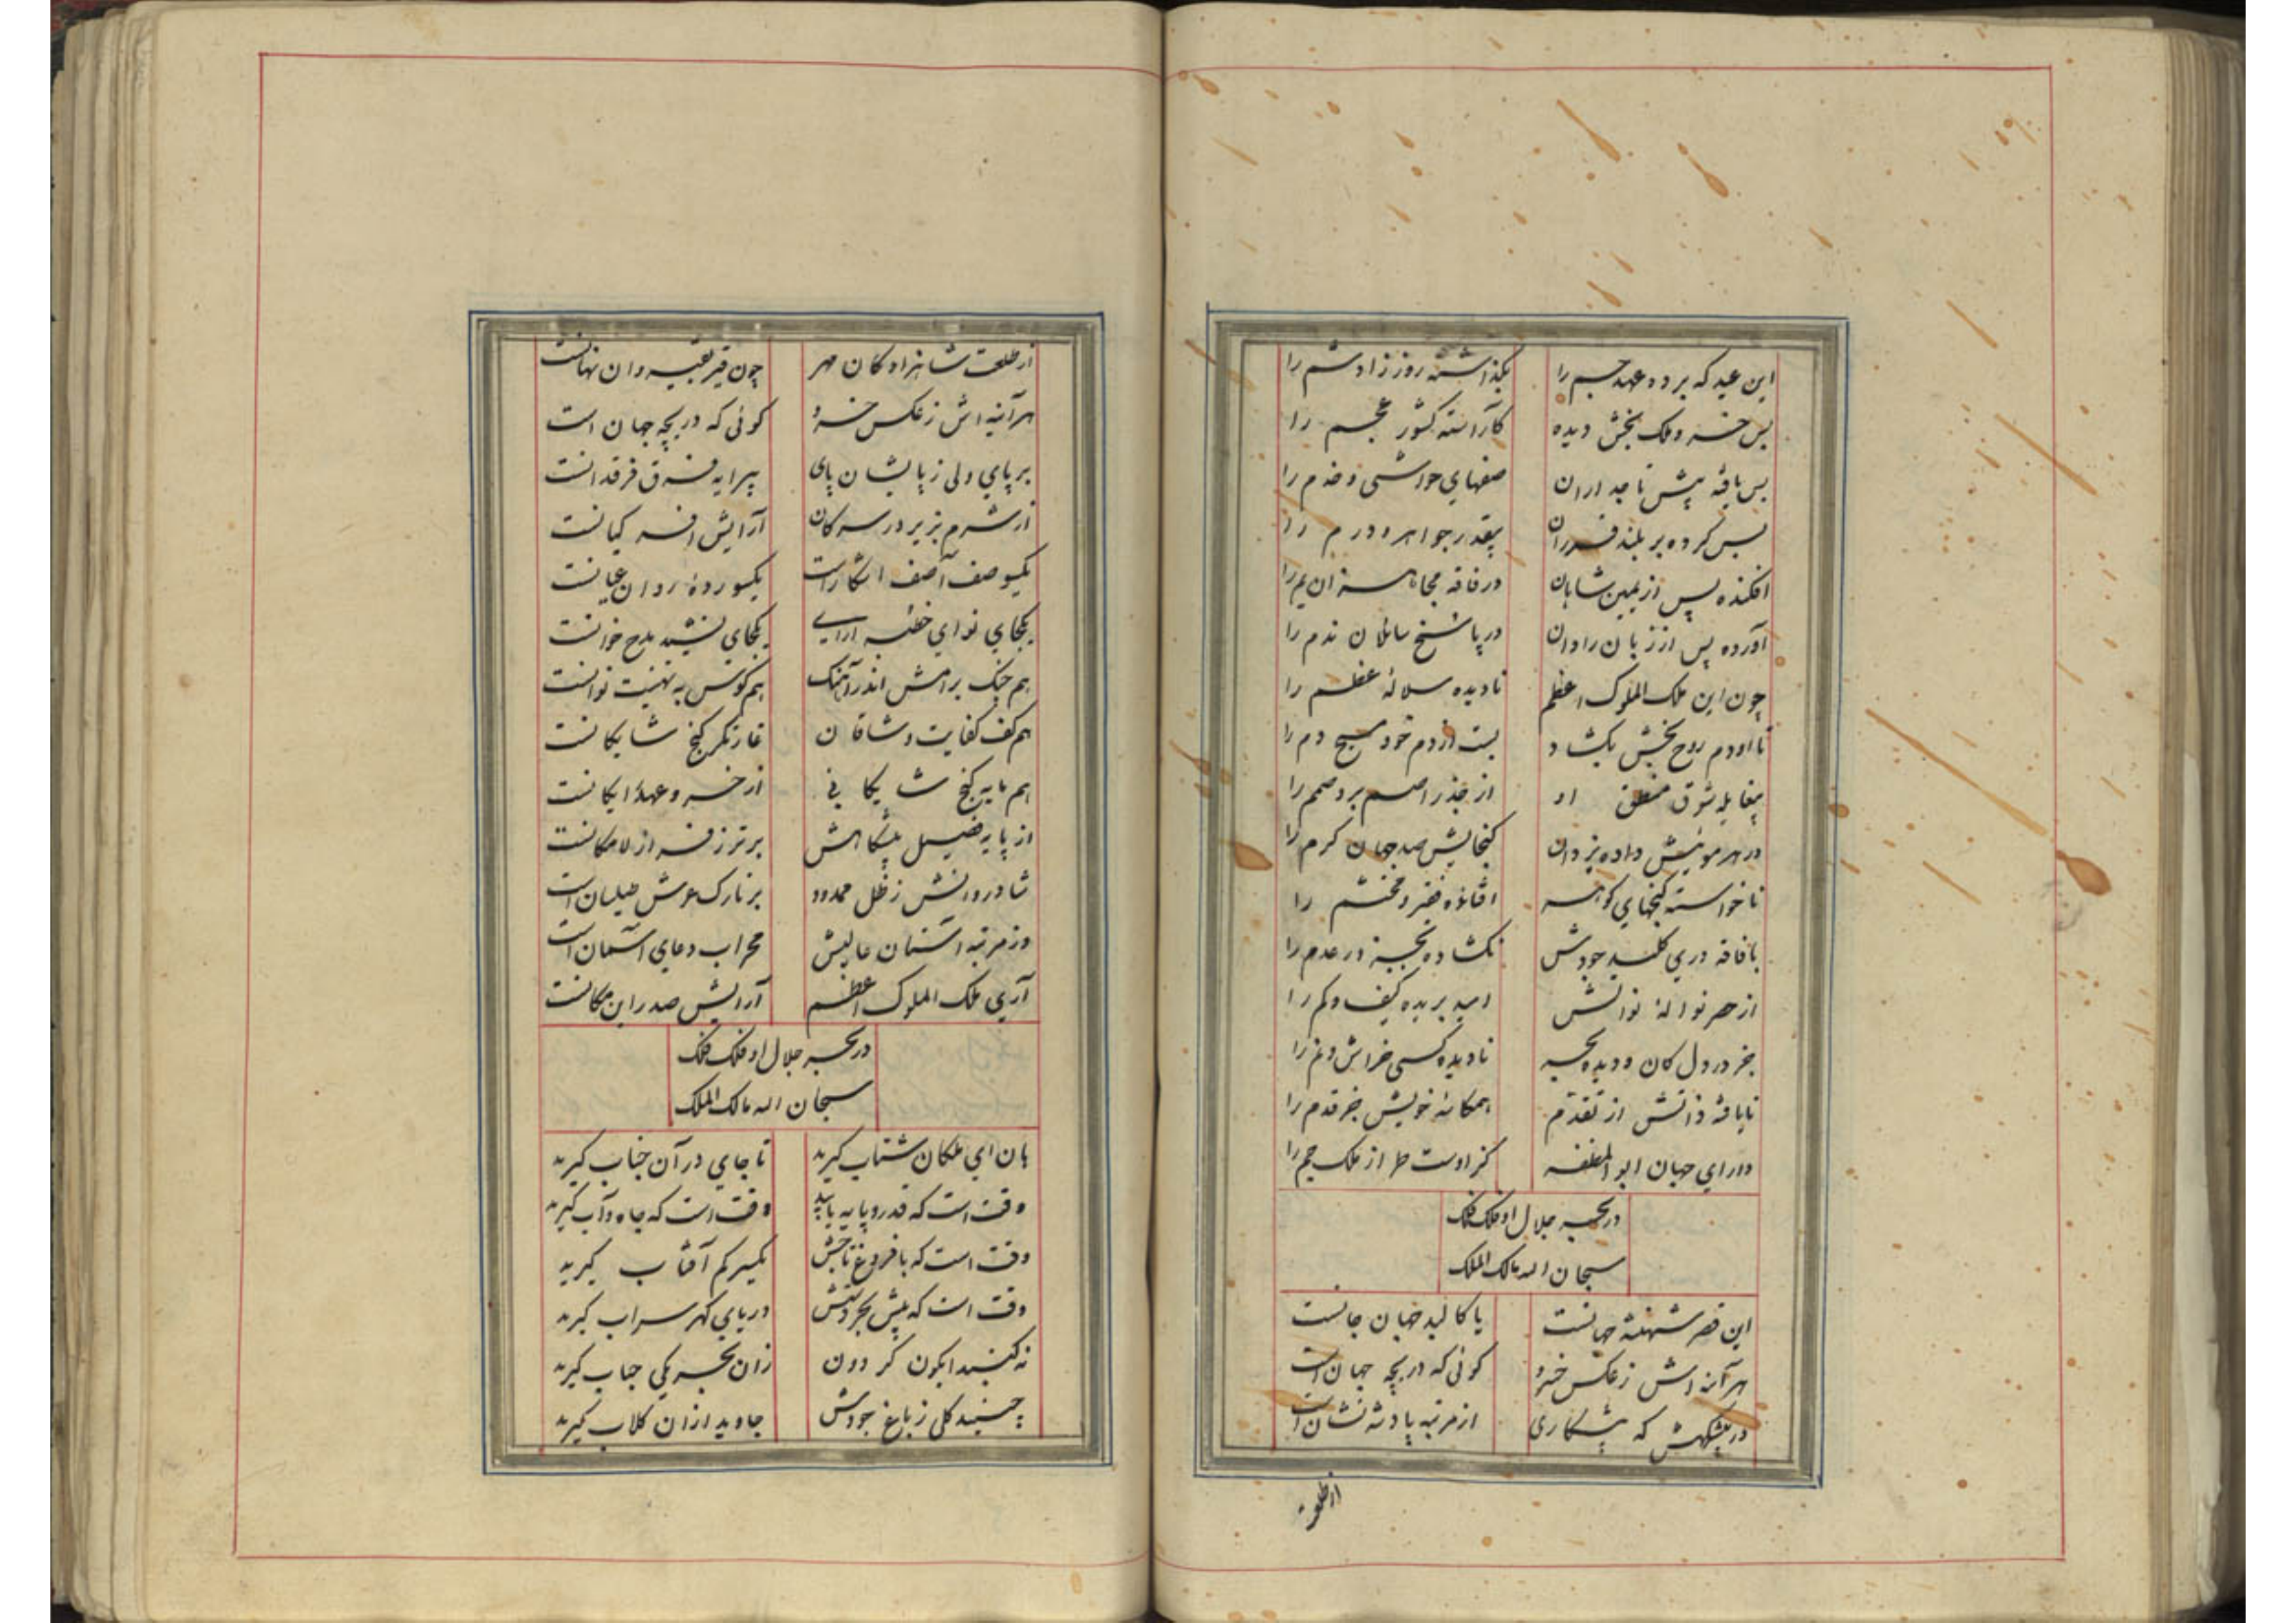 این عید که برده عهد جم را بگذاشته روز زادشم را
بس خسرو ملک بخش دیده کآراسته کشور عجم را
بس یافه پیش تاجداران صفهای حواشی و خدم را
بس کرده بر بلند قدران بیقدر جواهر و درم را
افکنده پس از یمین شاهان در فاقه یم را
آورده پس از زبان رادان در پاسخ سائلان ندم را
چون این ملک الملوک اعظم نادیده سلالهٔ عظم را
تا او دم روح بخش بگشاد بست از دم خود مسیح دم را
منطق او از جذر اصم برد صمم را
در هر مویش داده یزدان گنجایش صد جهان کرم را
ناخواسته گنجهای گوهر را
با فاقه دری کلید جودش نگشاده بجز در عدم را
از حصر نوالهٔ نوالش امید بریده کیف و کم را
جز در دل کان و دیده بحر نادیده کسی خراش و نم را
نایافه ذاتش از تقدم همخانه خویش جز قدم را
دارای جهان ابوالمظفر کز اوست طراز ملک جم را
در بحر جلال او فلک فلک
سبحان الله مالک الملک
این قصر شهنشه جهانست یا کالبد جهان جانست
هر آینه اش ز عکس خسرو گوئی که دریچه جهان است
در پیشگهش که پیشکاری از مرتبه پادشه نشان است
از طلعت
از طلعت شاهزادگان مهر چون قیر بقیروان نهانست
هر آینه اش ز عکس خسرو گوئی که دریچه جهان است
بر پای ولی ز پایشان پای پیرایه فرق فرقدانست
از شرم بزیر در سرکان آرایش افسر کیانست
یکسو صف آصف آشکار است یکسو ردهٔ ردان عیانست
یکجای نوای خطبه آرای یکجای نشید مدح خوانست
هم چنگ برامش اندر آهنگ هم کوس به تهنیت نوانست
هم کف کفایت وشاقان غارتگر گنج شایگانست
هم مایه گنج شایگانی از خسرو عهد رایگانست
از پایه فضیل پیشگاهش برتر ز فراز لامکانست
شادروانش ز ظل ممدود بر تارک عرش طیلسان است
وز مرتبه آستان عالیش محراب دعای آسمان است
آری ملک الملوک اعظم آرایش صدر این مکانست
در بحر جلال او فلک فلک
سبحان الله مالک الملک
هان ای ملکان شتاب گیرید تا جای در آن جناب گیرید
وقت است که قدر و پایه یابید وقت است که جاه و آب گیرید
وقت است که با فروغ تاجش یکسر کم آفتاب گیرید
وقت است که پیش بحر دستش دریای گهر سراب گیرید
نه گنبد آبگون گردون زان بحر یکی حباب گیرید
چینید گلی ز باغ جودش جاوید از آن گلاب گیرید